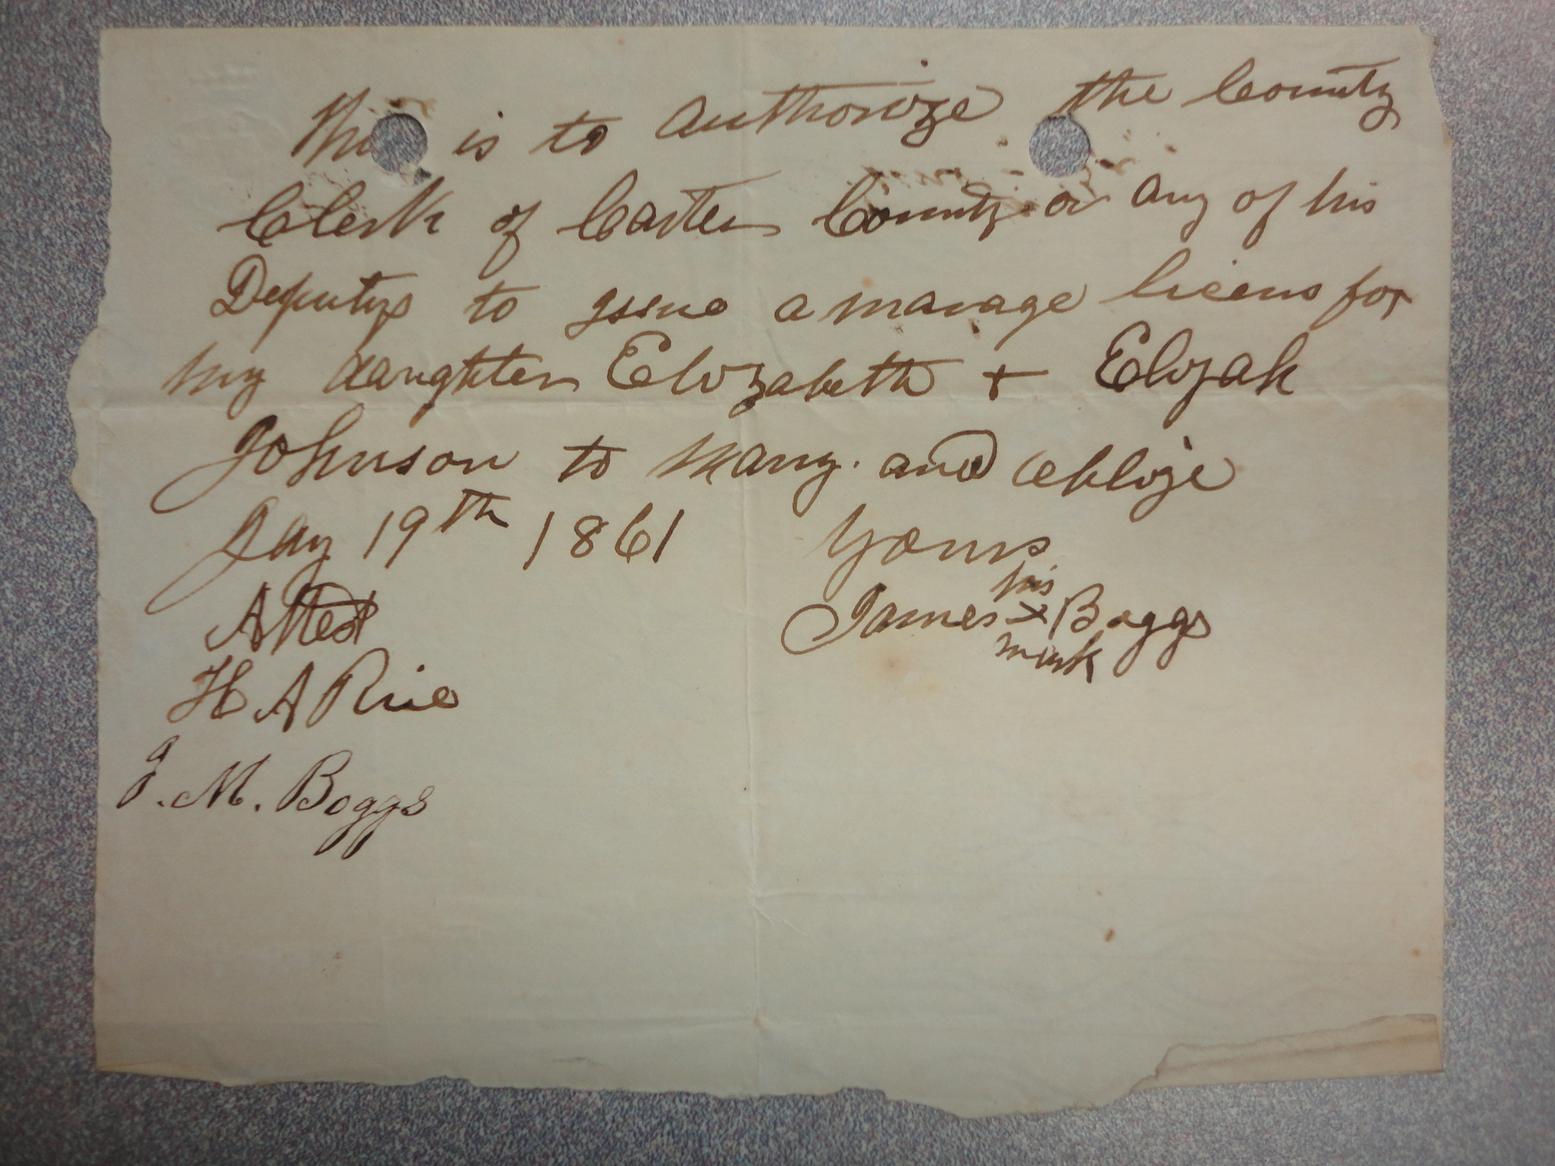 This is to authorize the County
Clerk of Carter County or any of his
Deputys to Issue a marage licens for
my daughter Elizabeth + Elijah
Johnson to marry. and obblije
Jay 19th 1861 Yours
Attest James his x mark Boggs
H A Rice
J. M. Boggs